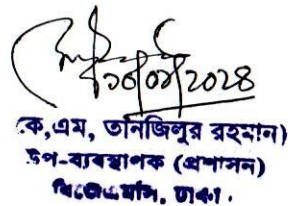 ১০/০১/২০২৪
(কে,এম, তানজিলুর রহমান)
উপ-ব্যবস্থাপক (প্রশাসন)
ঢাকা।